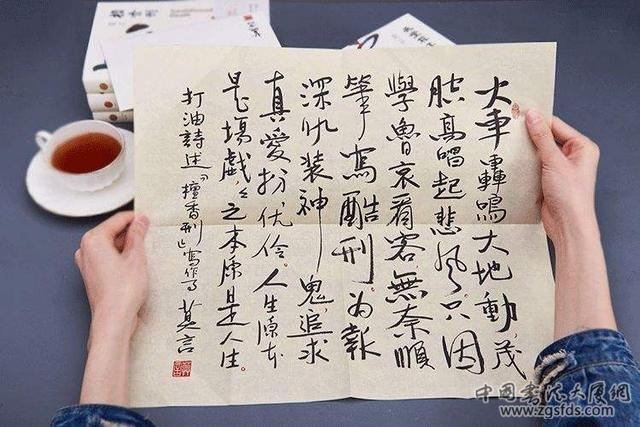 火車轟鳴大地動茂
腔高唱起悲風只因
學魯哀看客無奈順
筆寫酷刑。为報
深仇装神鬼，追求
真愛扮优伶。人生原本
是場戲，々之本原是人生。
打油詩述《檀香刑》寫作事 莫言
檀香刑
中国书法大展网
www.zgsfds.com